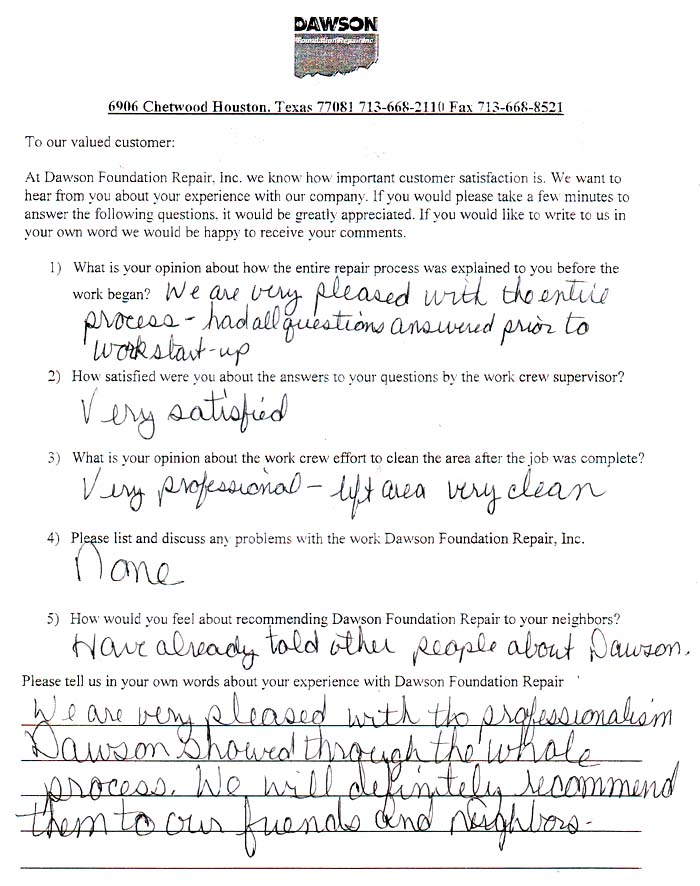 DAWSON
Foundation Repair Inc.
6906 Chetwood Houston, Texas 77081 713-668-2110 Fax 713-668-8521
To our valued customer:
At Dawson Foundation Repair, Inc. we know how important customer satisfaction is. We want to
hear from you about your experience with our company. If you would please take a few minutes to
answer the following questions, it would be greatly appreciated. If you would like to write to us in
your own word we would be happy to receive your comments.
1) What is your opinion about how the entire repair process was explained to you before the
work began? We are very pleased with the entire
process - had all questions answered prior to
work start-up
2) How satisfied were you about the answers to your questions by the work crew supervisor?
Very satisfied
3) What is your opinion about the work crew effort to clean the area after the job was complete?
Very professional - left area very clean
4) Please list and discuss any problems with the work Dawson Foundation Repair, Inc.
None
5) How would you feel about recommending Dawson Foundation Repair to your neighbors?
Have already told other people about Dawson.
Please tell us in your own words about your experience with Dawson Foundation Repair
We are very pleased with the professionalism
Dawson showed through the whole
process. We will definitely recommend
them to our friends and neighbors.